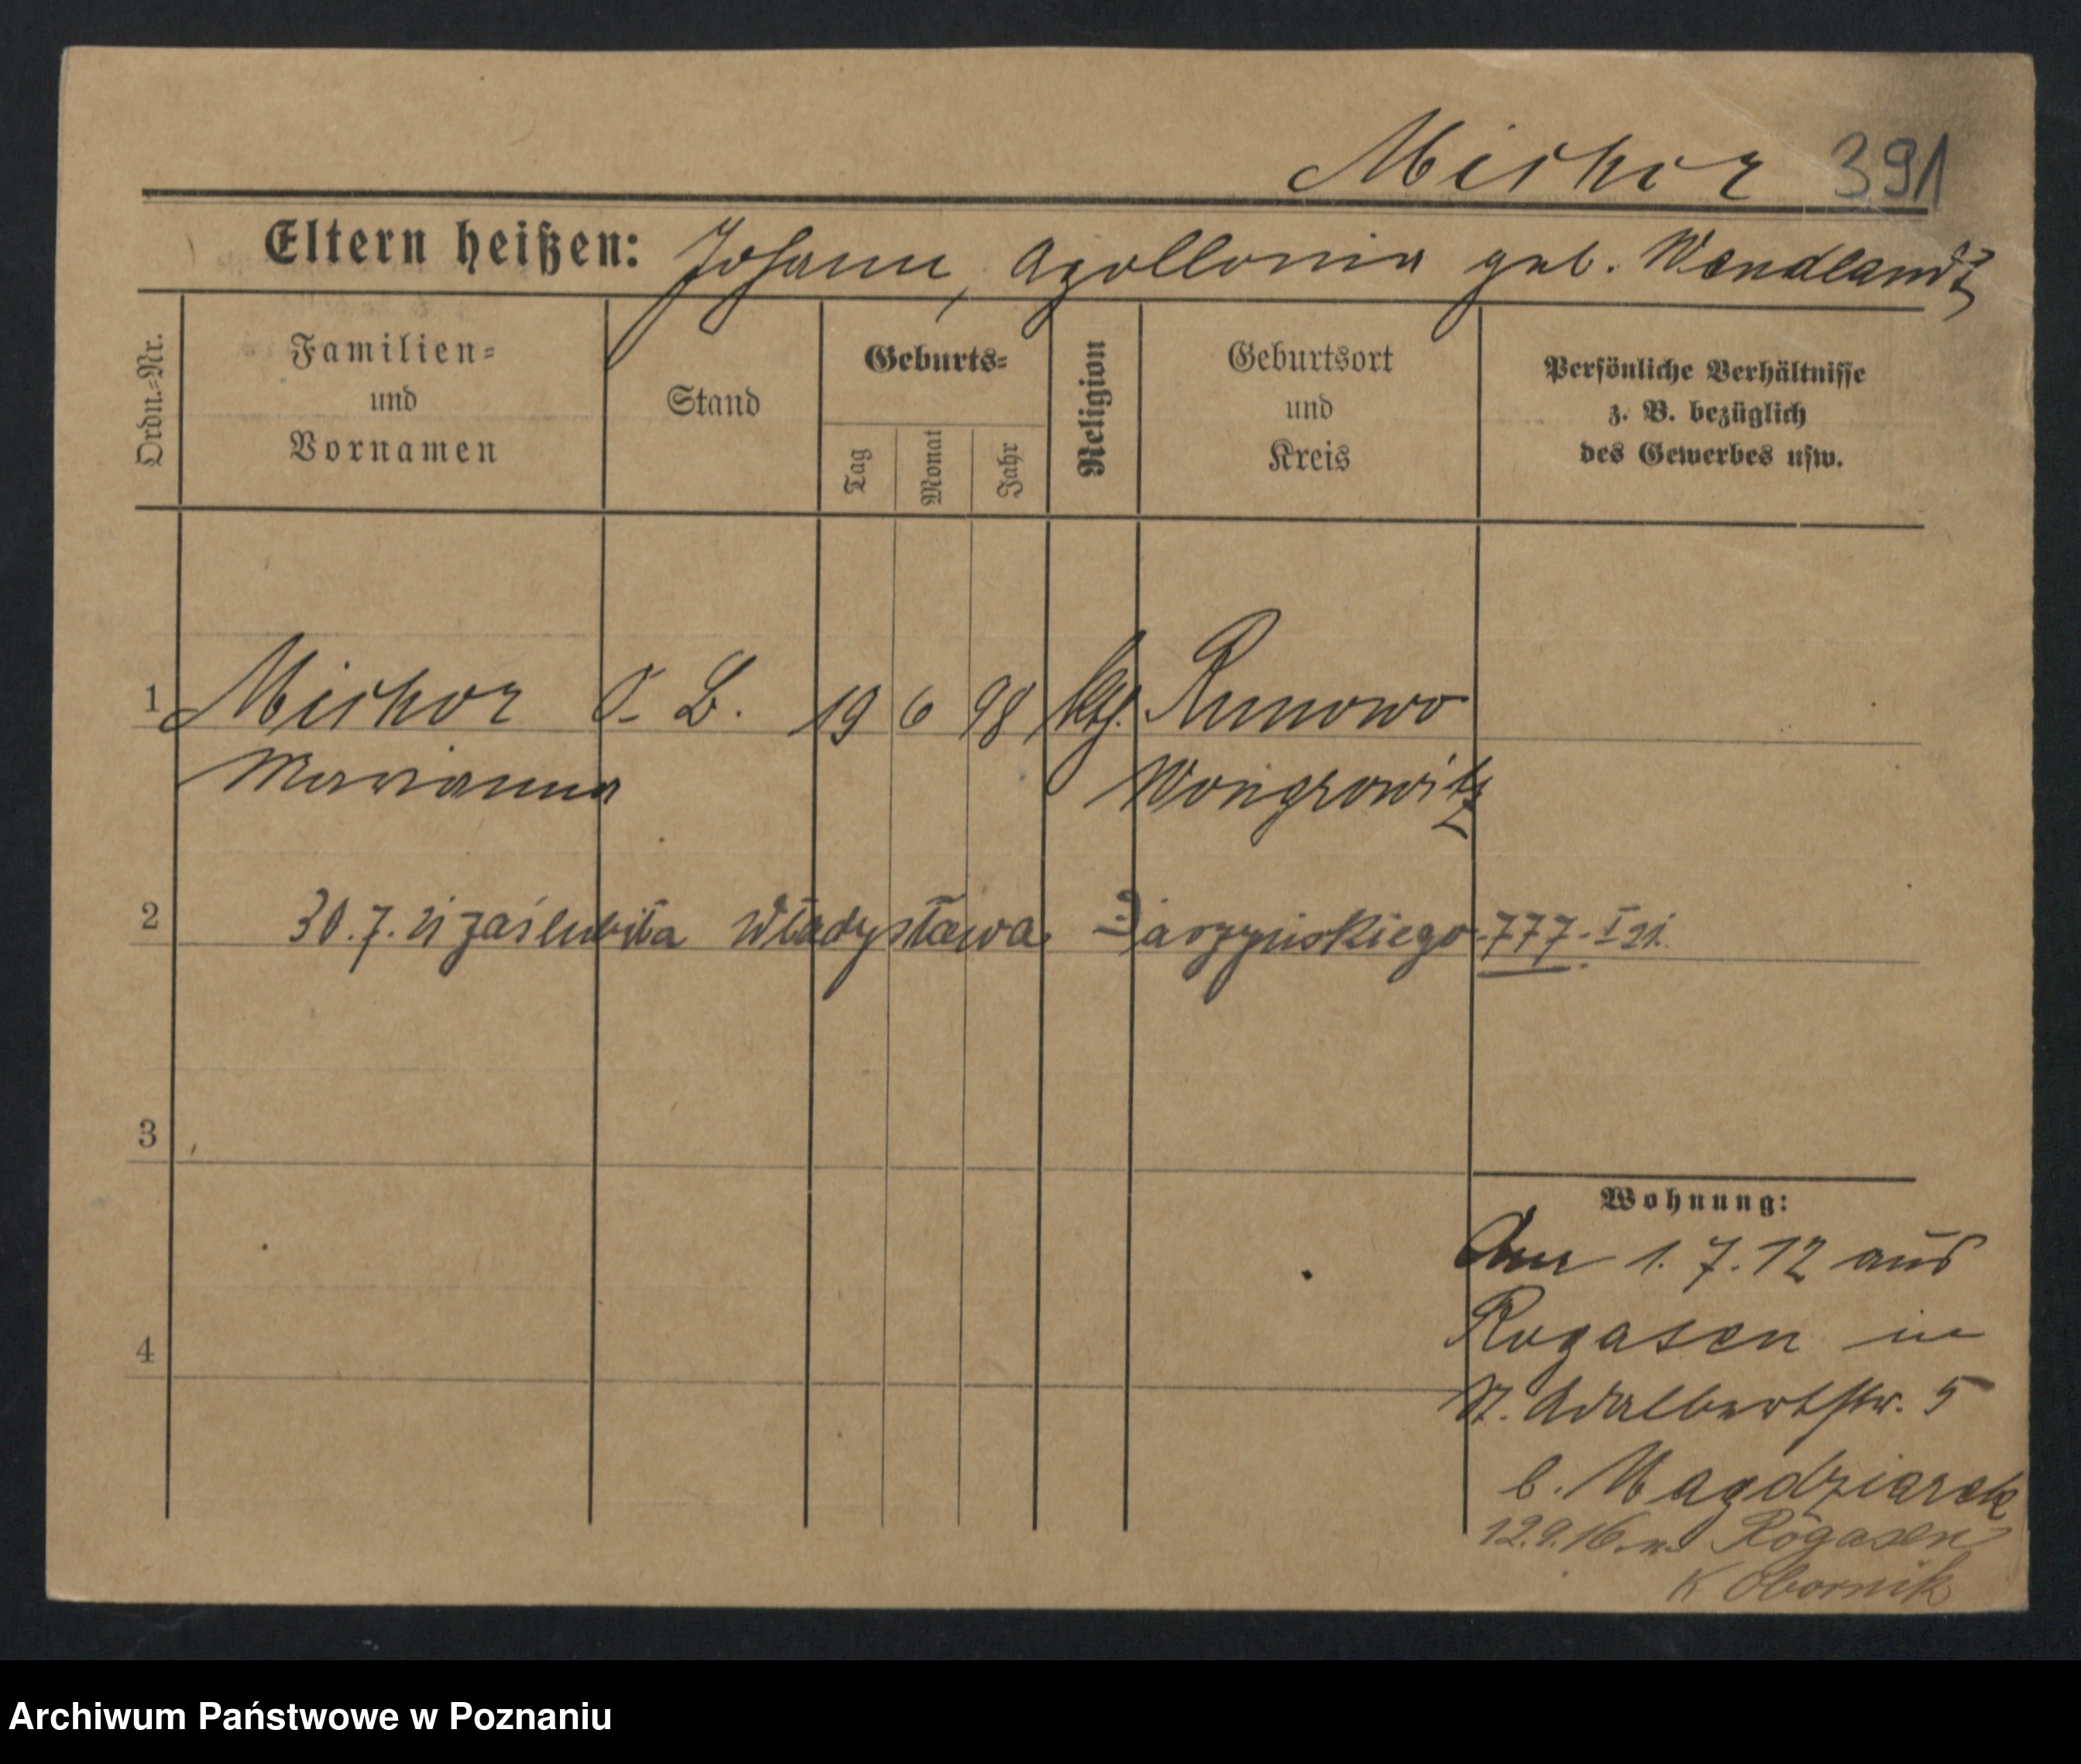 Mischor 391
Eltern heißen: Johann, Apollonia geb. Wendlandt
Ordn.=Nr.
Familien=
und
Vornamen
Stand
Geburts=
Tag
Monat
Jahr
Religion
Geburtsort
und
Kreis
Persönliche Verhältnisse
z. B. bezüglich
des Gewerbes usw.
1 Mischor 19 6 98 kth. Runowo
Marianna Wongrowitz
2 30.7.21 zaślubiła Władysława 777.I 21.
3
4
Wohnung:
1.7.12 aus
Rogasen in
St. Adalbertstr. 5
b. Magdziarek
12.9.16. n. Rogasen
K Obornik
Archiwum Państwowe w Poznaniu